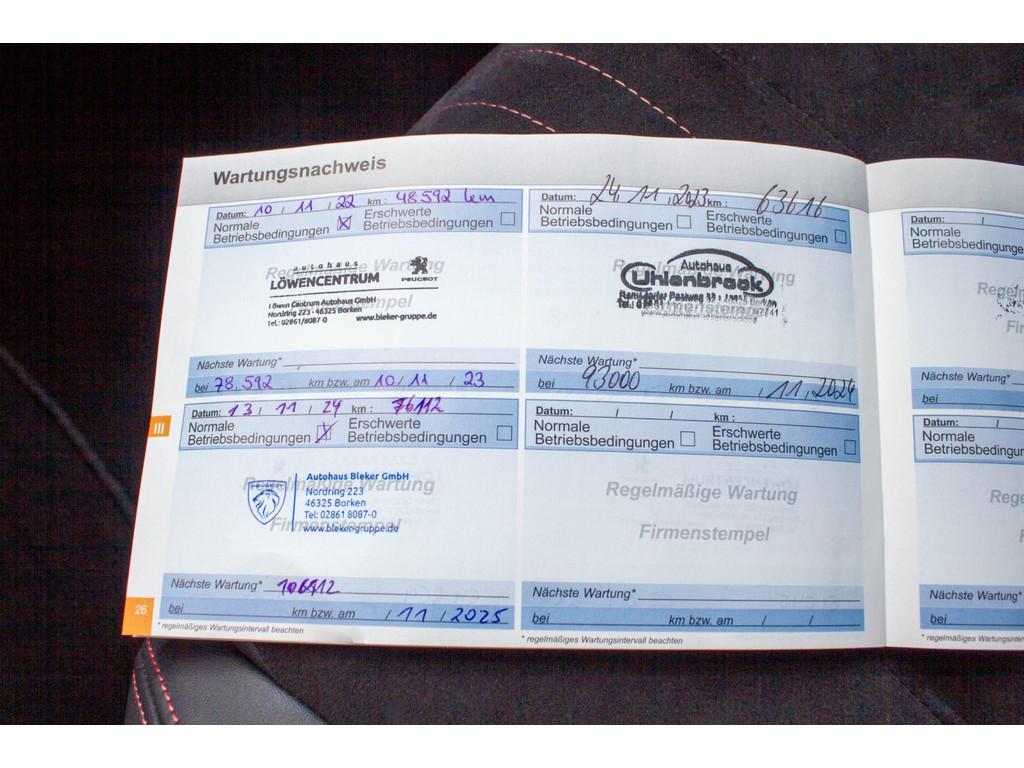 Wartungsnachweis
Datum: 10 / 11 / 22 km : 48.592 km
Normale
Betriebsbedingungen
Erschwerte
Betriebsbedingungen
Regelmäßige Wartung
autohaus
LÖWENCENTRUM
PEUGEOT
Firmenstempel
Löwen Centrum Autohaus GmbH
Nordring 223 · 46325 Borken
Tel.: 02861/8087-0 www.bleker-gruppe.de
Nächste Wartung*
bei 78.592 km bzw. am 10 / 11 / 23
Datum: 24.11.2023 km : 63616
Normale
Betriebsbedingungen
Erschwerte
Betriebsbedingungen
Autohaus
Uhlenbrock
Firmenstempel
Nächste Wartung*
bei 93000 km bzw. am / 11 / 2024
III
Datum: 13 / 11 / 24 km : 76112
Normale
Betriebsbedingungen
Erschwerte
Betriebsbedingungen
Regelmäßige Wartung
Firmenstempel
PEUGEOT
Autohaus Bleker GmbH
Nordring 223
46325 Borken
Tel: 02861 8087-0
www.bleker-gruppe.de
Nächste Wartung* 106112
bei km bzw. am / 11 / 2025
Datum: / / km :
Normale
Betriebsbedingungen
Erschwerte
Betriebsbedingungen
Regelmäßige Wartung
Firmenstempel
Nächste Wartung*
bei km bzw. am / /
26
* regelmäßiges Wartungsintervall beachten
* regelmäßiges Wartungsintervall beachten
Datum: /
Normale
Betriebsbedingunge
Nächste Wartung*
bei
Datum: /
Normale
Betriebsbedingunge
Nächste Wartung*
bei
* regelmäßiges Wartungsinter